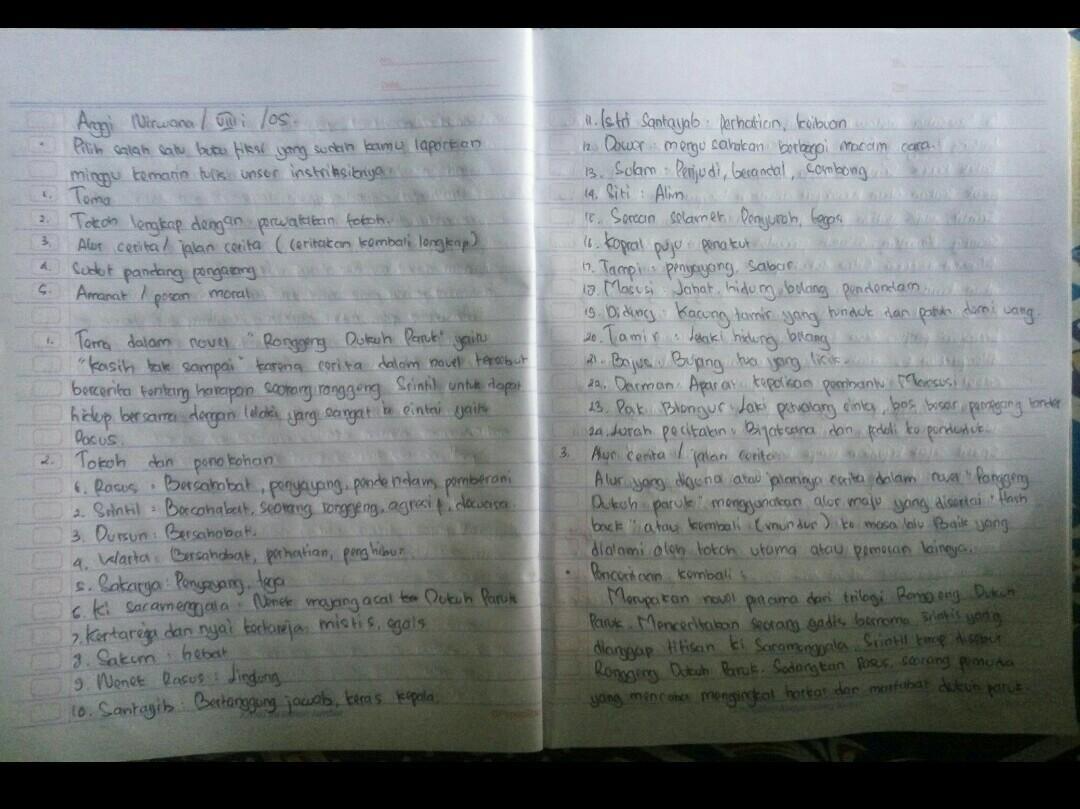 Anggi Nirwana / VIII i / 05.
• Pilih salah satu buku fiksi yang sudah kamu laporkan
minggu kemarin tulis unsur instriksiknya.
1. Tema
2. Tokoh lengkap dengan perwatakan tokoh.
3. Alur cerita / jalan cerita (ceritakan kembali lengkap)
4. Sudut pandang pengarang
5. Amanat / pesan moral
1. Tema dalam novel "Ronggeng Dukuh Paruk" yaitu
"kasih tak sampai" karena cerita dalam novel tersebut
bercerita tentang harapan seorang ronggeng Srintil untuk dapat
hidup bersama dengan lelaki yang sangat ia cintai yaitu
Rasus.
2. Tokoh dan penokohan
1. Rasus : Bersahabat, penyayang, pendendam, pemberani
2. Srintil : Bersahabat, seorang ronggeng, agresif, dewasa.
3. Dursun : Bersahabat.
4. Warta : Bersahabat, perhatian, penghibur
5. Sakarya : Penyayang, tega
6. Ki Secamenggala : Nenek moyang asal Dukuh Paruk
7. Kertareja dan nyai kertareja : mistis, egois
8. Sakum : hebat
9. Nenek Rasus : linglung
10. Santayib : Bertanggung jawab, keras kepala.
11. Istri Santayab : Perhatian, keibuan
12. Dower : mengusahakan berbagai macam cara.
13. Sulam : Penjudi, berandal, sombong
14. Siti : Alim
15. Sersan Selamet : Penyuruh, tegas
16. Kopral pujo : penakut
17. Tampi : penyayang, sabar
18. Masusi : Jahat, hidung belang pendendam
19. Didung : Kacung tamir yang tunduk dan patuh demi uang.
20. Tamir : Lelaki hidung belang
21. Bajus : Bujang tua yang licik.
22. Darman : Aparat kepolisian pembantu Marsusi
23. Pak Blengur : Laki petualang cinta, bos besar pemegang tender
24. Lurah pecikalan : Bijaksana dan peduli ke penduduk.
3. Alur cerita / jalan cerita
Alur yang diguna atau jalannya cerita dalam novel "Ronggeng
Dukuh paruk" menggunakan alur maju yang disertai "flash
back" atau kembali (mundur) ke masa lalu Baik yang
dialami oleh tokoh utama atau pemeran lainnya.
• Penceritaan kembali :
Merupakan novel pertama dari trilogi Ronggeng Dukuh
Paruk. Menceritakan seorang gadis bernama Srintil yang
dianggap titisan ki Saramenggala. Srintil kerap disebut
Ronggeng Dukuh Paruk. Sedangkan Rasus, seorang pemuda
yang mencoba mengingkat harkat dan martabat dukuh paruk.